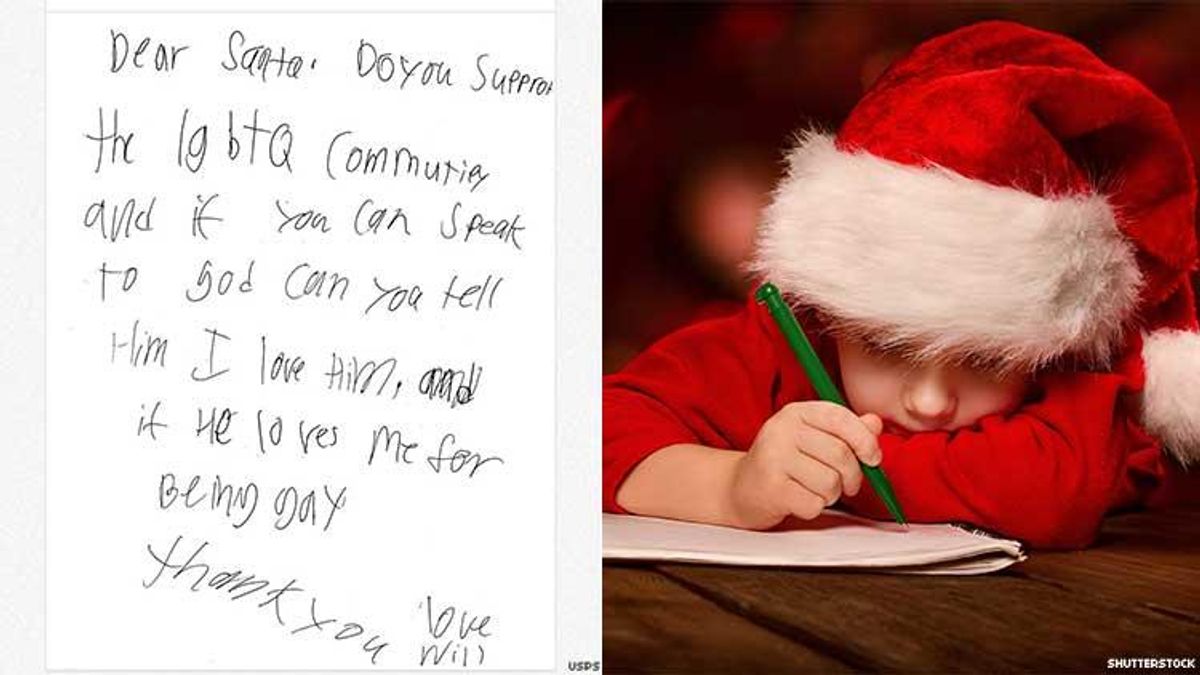 Dear Santa. Do you Support
the lgbtQ Community
and if you can speak
to god can you tell
Him I love Him, and
if He loves me for
Being gay
thank you
love
Will
USPS
SHUTTERSTOCK